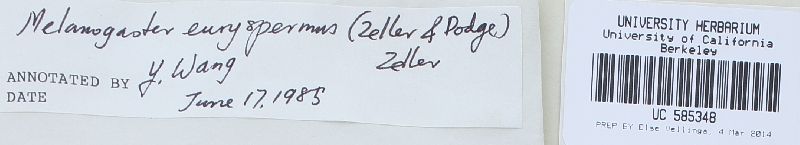 Melanogaster euryspermus (Zeller & Dodge)
Zeller
ANNOTATED BY Y. Wang
DATE June 17, 1985
UNIVERSITY HERBARIUM
University of California
Berkeley
UC 585348
PREP BY Else Vellinga, 4 Mar 2014